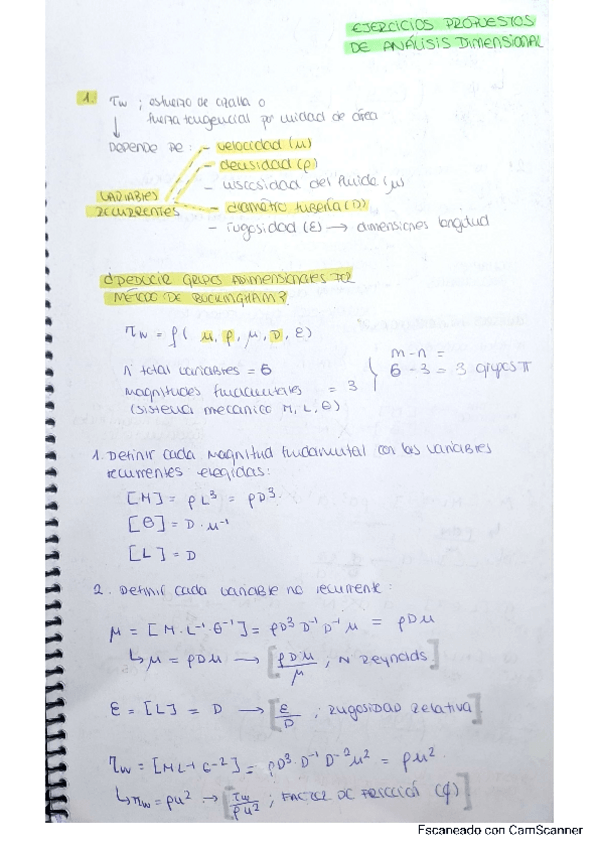 EJERCICIOS PROPUESTOS
DE ANÁLISIS DIMENSIONAL
1. τw ; esfuerzo de cizalla o
fuerza tangencial por unidad de área
↓
DEPENDE DE : - velocidad (u)
- densidad (ρ)
- viscosidad del fluido (μ)
VARIABLES
RECURRENTES
- diámetro tubería (D)
- rugosidad (ε) → dimensiones longitud
¿DEDUCIR GRUPOS ADIMENSIONALES POR
MÉTODO DE BUCKINGHAM?
τw = f( u, ρ, μ, D, ε)
nº total variables = 6
magnitudes fundamentales = 3
(sistema mecánico M, L, θ)
m - n =
6 - 3 = 3 grupos π
1. Definir cada magnitud fundamental con las variables
recurrentes elegidas:
[M] = ρL³ = ρD³
[θ] = D · u⁻¹
[L] = D
2. Definir cada variable no recurrente :
μ = [M · L⁻¹ · θ⁻¹] = ρD³ D⁻¹ D⁻¹ u = ρDu
↳ μ = ρDu → [ρDu/μ ; N Reynolds]
ε = [L] = D → [ε/D ; rugosidad relativa]
τw = [ML⁻¹ θ⁻²] = ρD³ D⁻¹ D⁻² u² = ρu²
↳ τw = ρu² → [τw/ρu² ; FACTOR DE FRICCIÓN (φ)]
Escaneado con CamScanner